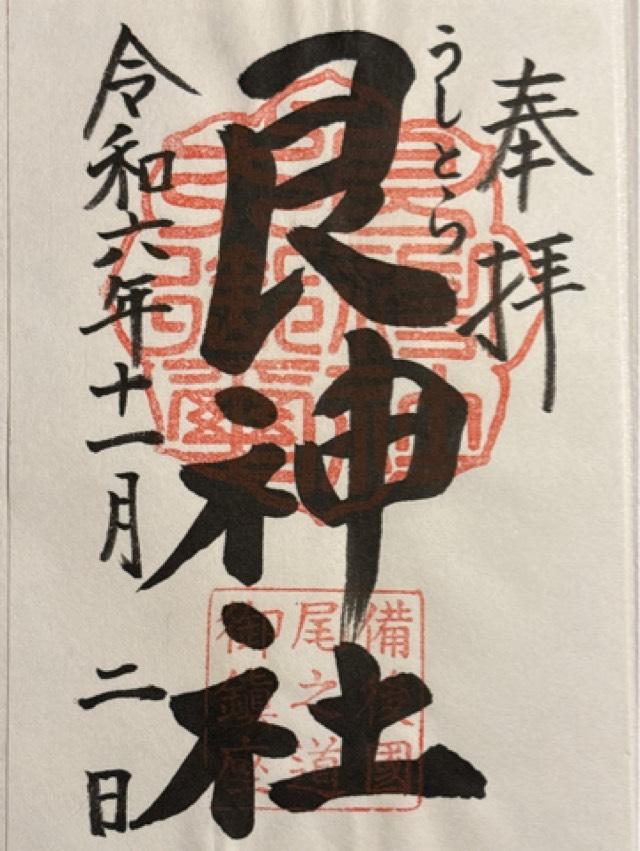 奉拝
うしとら
艮神社
令和六年十一月二日
備後國
尾之道
御鎮座